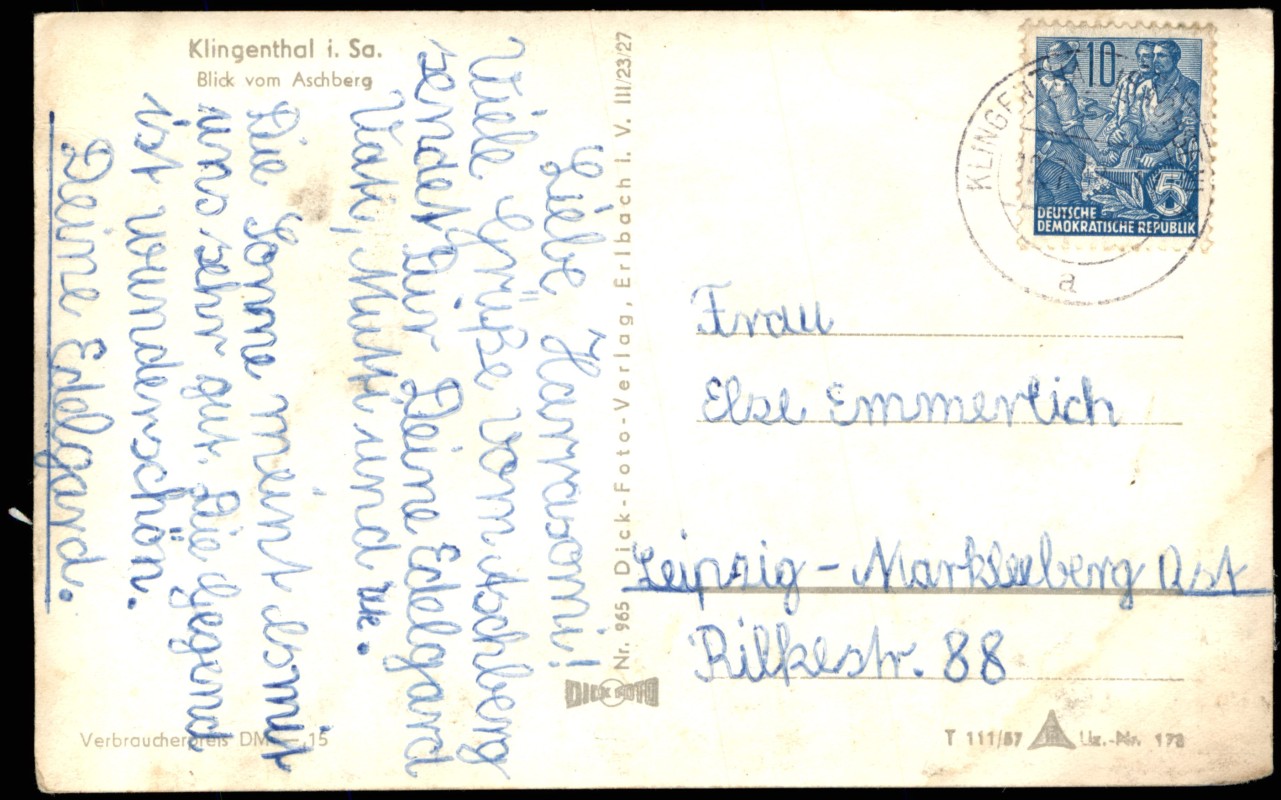 Klingenthal i. Sa.
Blick vom Aschberg
Liebe Hannaomi!
Viele Grüße vom Aschberg
sendet Dir Deine Edelgard
Vati, Mutti und
Die Sonne meint es mit
uns sehr gut. Die Gegend
ist wunderschön.
Deine Edelgard.
Verbraucherpreis DM –,15
Nr. 965 Dick-Foto-Verlag, Erlbach i. V. III/23/27
DICK FOTO
10
5
DEUTSCHE
DEMOKRATISCHE REPUBLIK
a
Frau
Else Emmerlich
Leipzig - Markkleeberg Ost
Rilkestr. 88
T 111/57 Liz.-Nr. 173